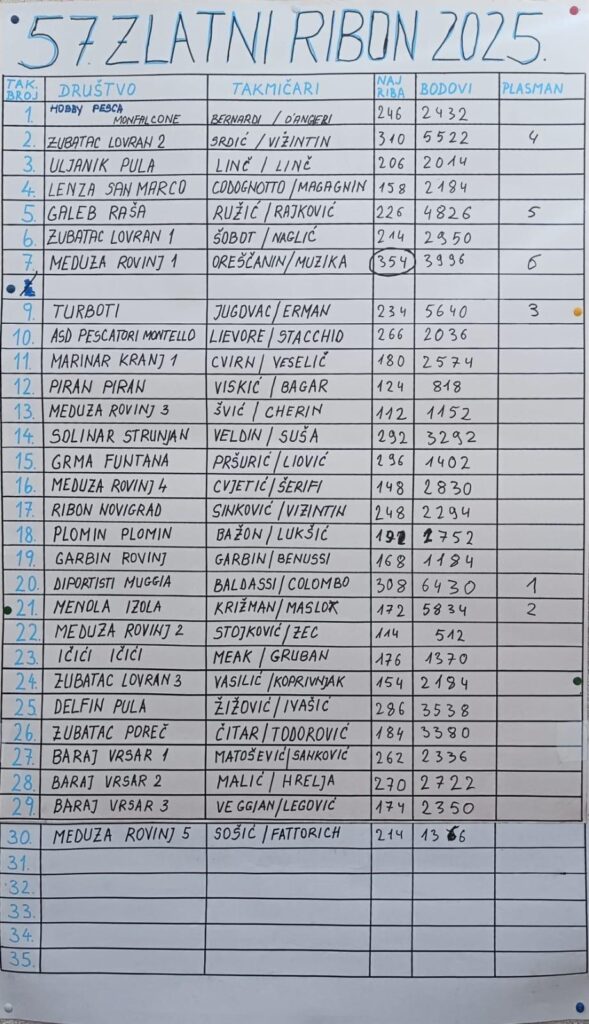 57. ZLATNI RIBON 2025.
TAK. BROJ DRUŠTVO TAKMIČARI NAJ RIBA BODOVI PLASMAN
1. HOBBY PESCA MONFALCONE BERNARDI / D'ANGERI 246 2432
2. ZUBATAC LOVRAN 2 SRDIĆ / VIŽINTIN 310 5522 4
3. ULJANIK PULA LINČ / LINČ 206 2014
4. LENZA SAN MARCO CODOGNOTTO / MAGAGNIN 158 2184
5. GALEB RAŠA RUŽIĆ / RAJKOVIĆ 226 4826 5
6. ZUBATAC LOVRAN 1 ŠOBOT / NAGLIĆ 214 2950
7. MEDUZA ROVINJ 1 OREŠČANIN / MUZIKA 354 3996 6
9. TURBOTI JUGOVAC / ERMAN 234 5640 3
10. ASD PESCATORI MONTELLO LIEVORE / STACCHIO 266 2036
11. MARINAR KRANJ 1 CVIRN / VESELIČ 180 2574
12. PIRAN PIRAN VISKIĆ / BAGAR 124 818
13. MEDUZA ROVINJ 3 ŠVIĆ / CHERIN 112 1152
14. SOLINAR STRUNJAN VELDIN / SUŠA 292 3292
15. GRMA FUNTANA PRŠURIĆ / LIOVIĆ 296 1402
16. MEDUZA ROVINJ 4 CVJETIĆ / ŠERIFI 148 2830
17. RIBON NOVIGRAD SINKOVIĆ / VIZINTIN 248 2294
18. PLOMIN PLOMIN BAŽON / LUKŠIĆ 2752
19. GARBIN ROVINJ GARBIN / BENUSSI 168 1184
20. DIPORTISTI MUGGIA BALDASSI / COLOMBO 308 6430 1
21. MENOLA IZOLA KRIŽMAN / MASLOK 172 5834 2
22. MEDUZA ROVINJ 2 STOJKOVIĆ / ZEC 114 512
23. IČIĆI IČIĆI MEAK / GRUBAN 176 1370
24. ZUBATAC LOVRAN 3 VASILIĆ / KOPRIVNJAK 154 2184
25. DELFIN PULA ŽIŽOVIĆ / IVAŠIĆ 286 3538
26. ZUBATAC POREČ ČITAR / TODOROVIĆ 184 3380
27. BARAJ VRSAR 1 MATOŠEVIĆ / SANKOVIĆ 262 2336
28. BARAJ VRSAR 2 MALIĆ / HRELJA 270 2722
29. BARAJ VRSAR 3 VEGGIAN / LEGOVIĆ 174 2350
30. MEDUZA ROVINJ 5 SOŠIĆ / FATTORICH 214
31.
32.
33.
34.
35.